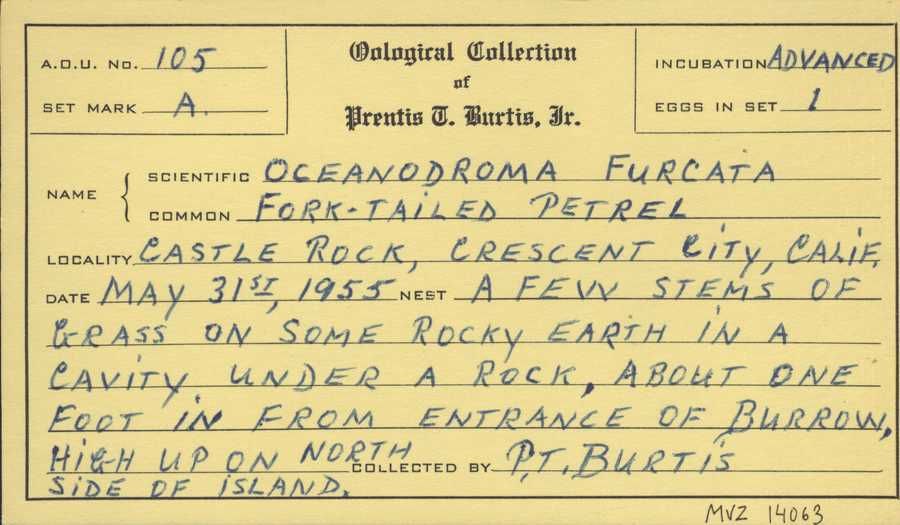 A.O.U. NO. 105
SET MARK A.
Oological Collection
of
Prentis T. Burtis, Jr.
INCUBATION ADVANCED
EGGS IN SET 1
NAME
SCIENTIFIC OCEANODROMA FURCATA
COMMON FORK-TAILED PETREL
LOCALITY CASTLE ROCK, CRESCENT CITY, CALIF.
DATE MAY 31ST, 1955 NEST A FEW STEMS OF
GRASS ON SOME ROCKY EARTH IN A
CAVITY UNDER A ROCK, ABOUT ONE
FOOT IN FROM ENTRANCE OF BURROW,
HIGH UP ON NORTH COLLECTED BY P.T. BURTIS
SIDE OF ISLAND.
MVZ 14063